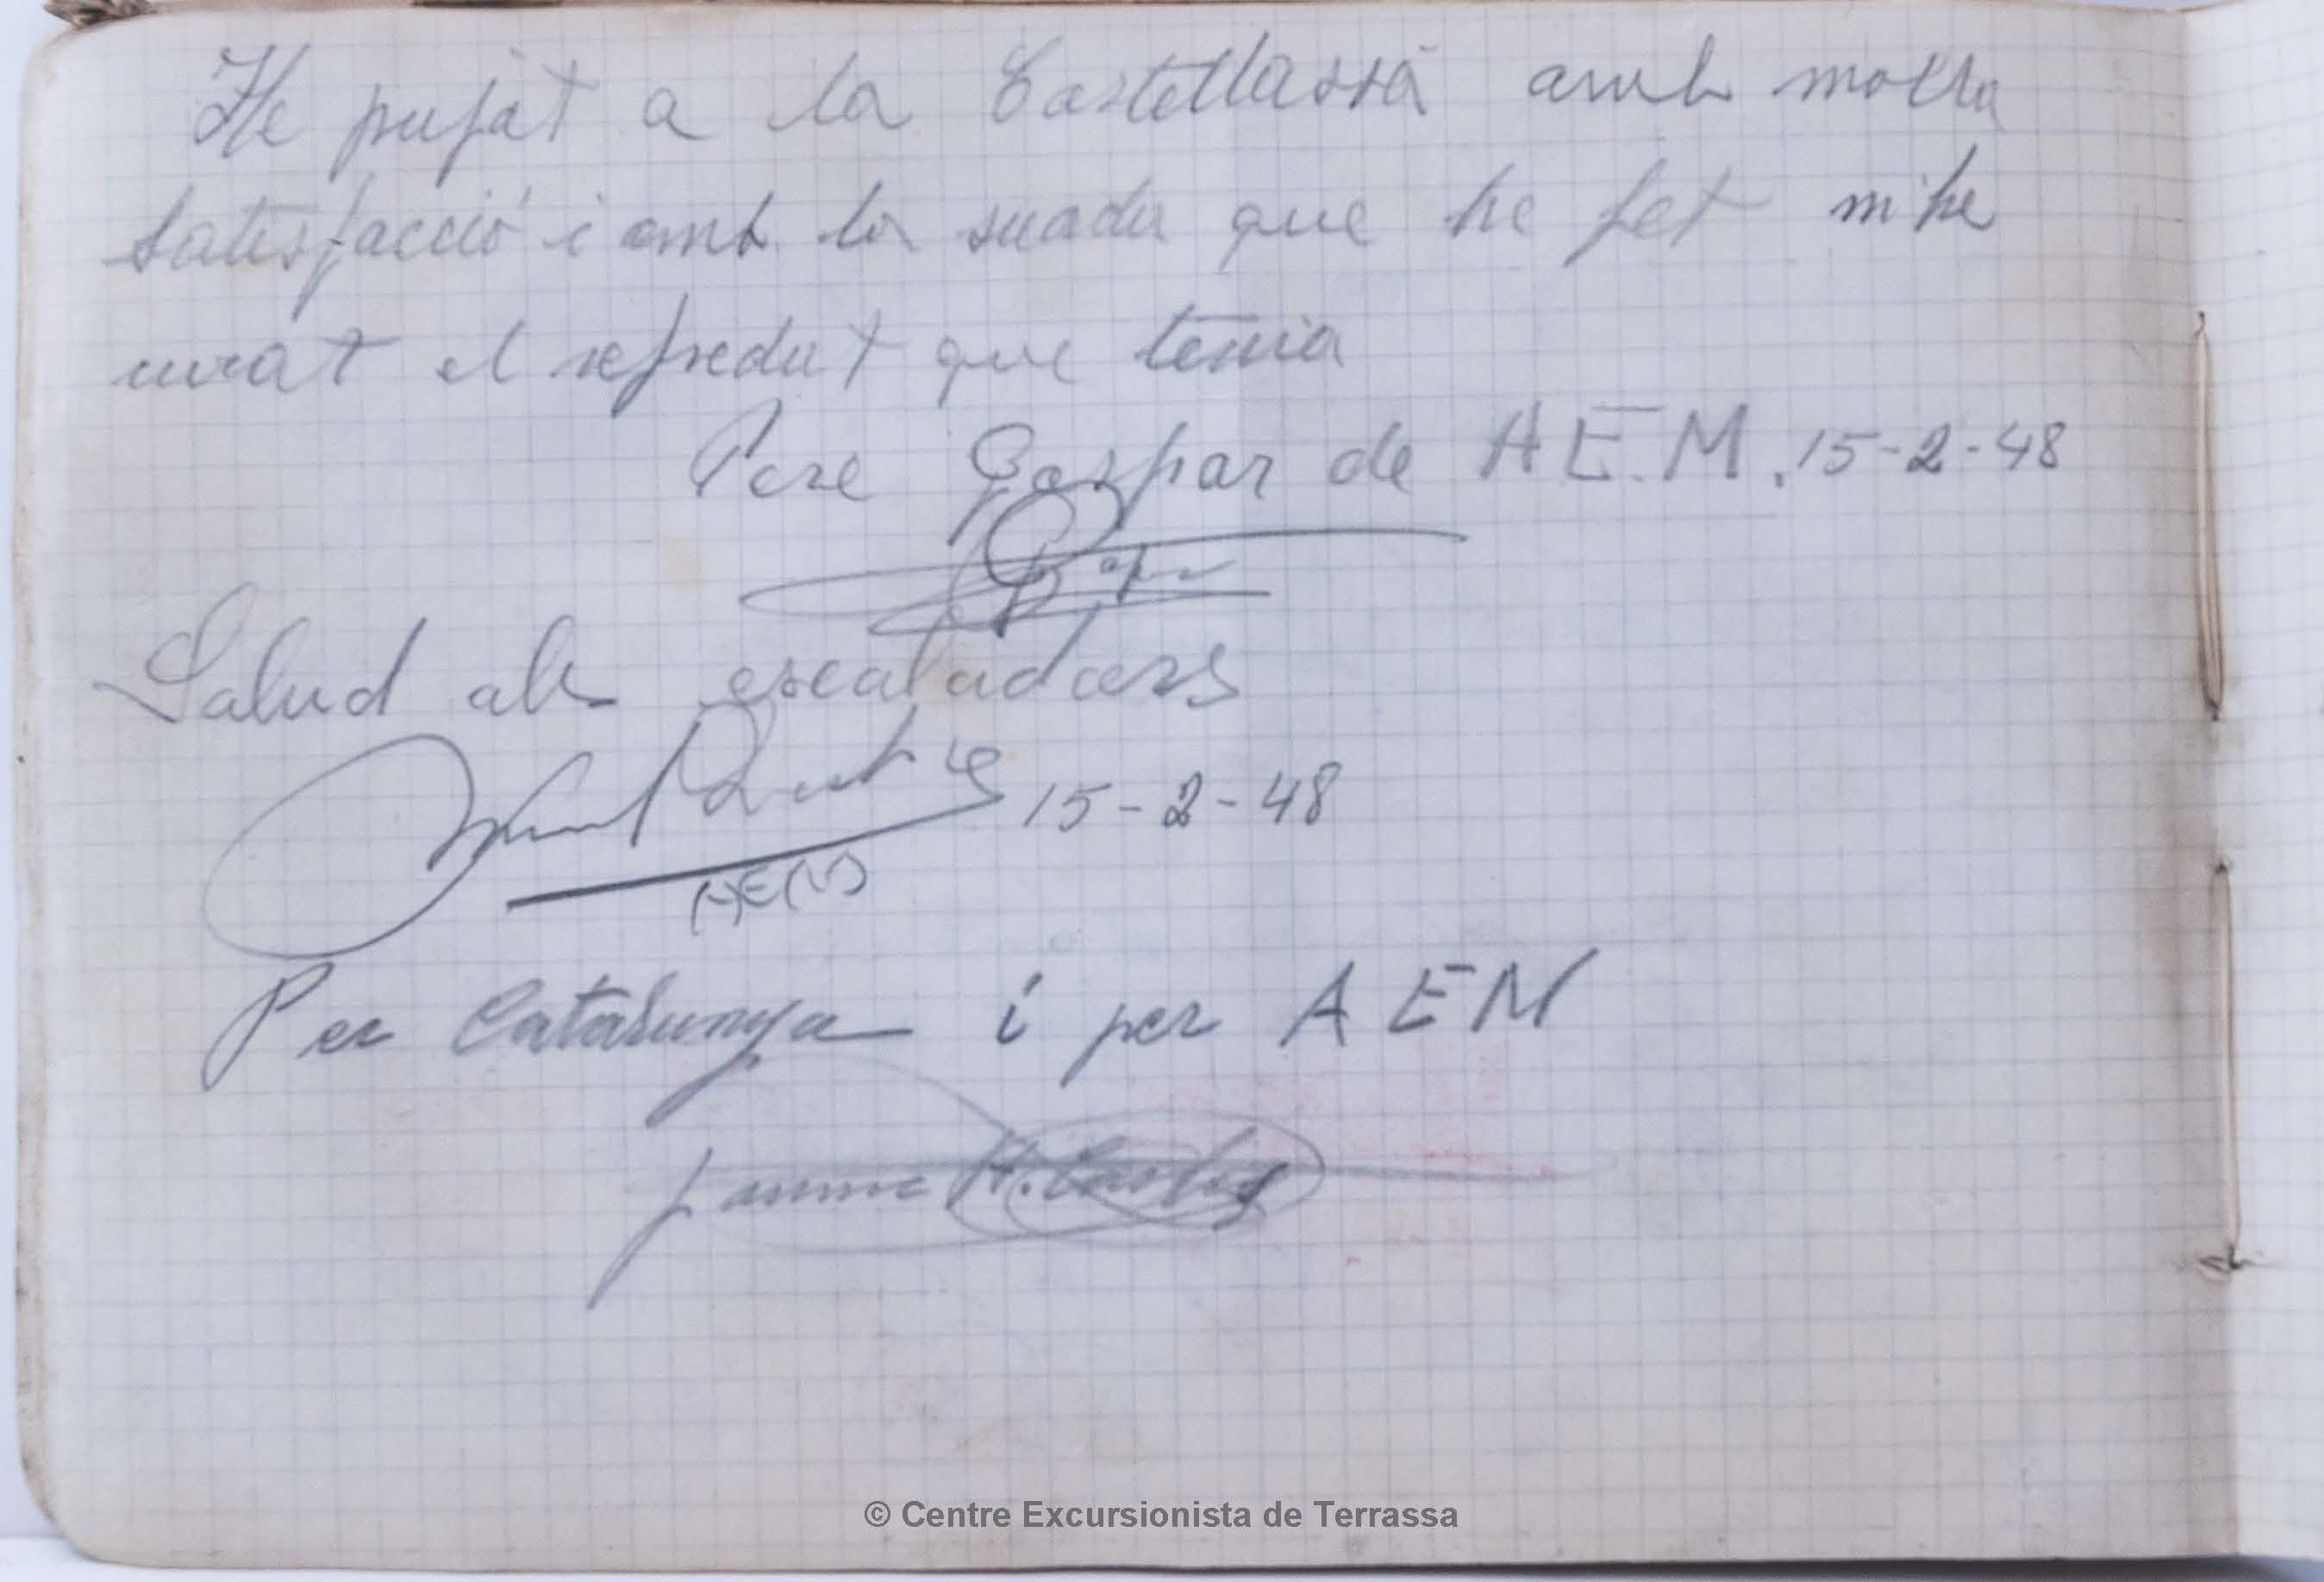 He pujat a la Castellassa amb molta
satisfacció i amb la suada que he fet m'he
curat el refredat que tenia
Pere Gaspar de A E. M. 15-2-48
Salud als escaladors
15-2-48
Per Catalunya i per A E M
Jaume
© Centre Excursionista de Terrassa